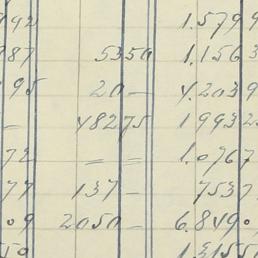 992 1.5799
987 5350 1.1563
995 20 — 4.2039
— 48275 19932
72 = = 1.0767
77 137 — 7537
09 2050 — 6.8490
50 1.3155